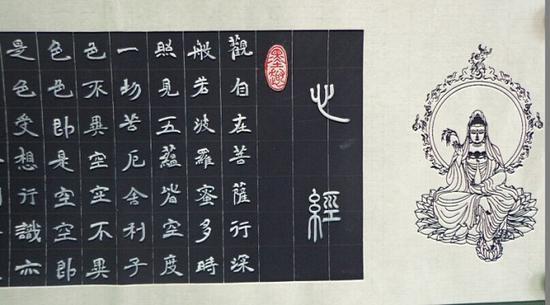 心經
觀自在菩薩行深
般若波羅蜜多時
照見五蘊皆空度
一切苦厄舍利子
色不異空空不異
色色即是空空即
是色受想行識亦